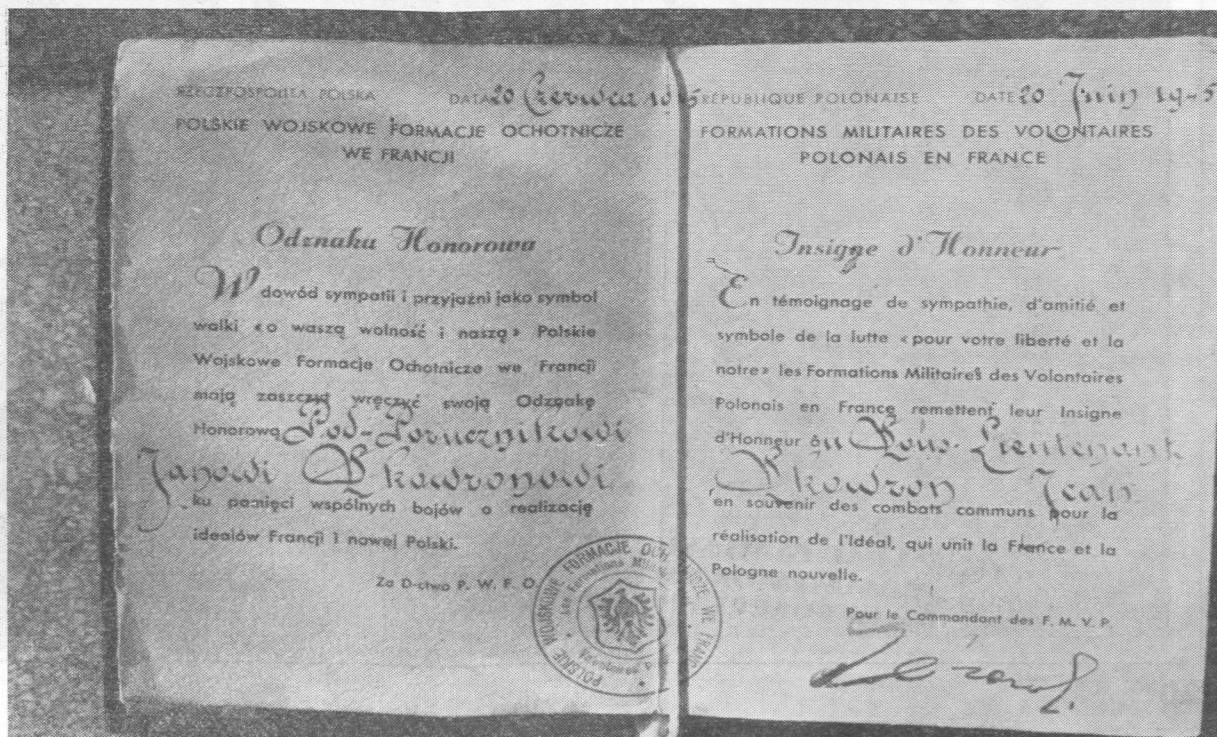 RZECZPOSPOLITA POLSKA DATA 20 Czerwca
POLSKIE WOJSKOWE FORMACJE OCHOTNICZE
WE FRANCJI
Odznaka Honorowa
W dowód sympatii i przyjaźni jako symbol
walki «o waszą wolność i naszą» Polskie
Wojskowe Formacje Ochotnicze we Francji
mają zaszczyt wręczyć swoją Odznakę
Honorową Pod-Porucznikowi
Janowi Skowronowi
ku pamięci wspólnych bojów o realizację
idealów Francji i nowej Polski.
Za D-ctwo P. W. F. O.
POLSKIE WOJSKOWE FORMACJE OCHOTNICZE WE
RÉPUBLIQUE POLONAISE DATE 20 Juin 19-5
FORMATIONS MILITAIRES DES VOLONTAIRES
POLONAIS EN FRANCE
Insigne d'Honneur
En témoignage de sympathie, d'amitié et
symbole de la lutte «pour votre liberté et la
notre» les Formations Militaires des Volontaires
Polonais en France remettent leur Insigne
d'Honneur au Sous-Lieutenant
Skowron Jean
en souvenir des combats communs pour la
réalisation de l'Idéal, qui unit la France et la
Pologne nouvelle.
Pour le Commandant des F. M. V. P.